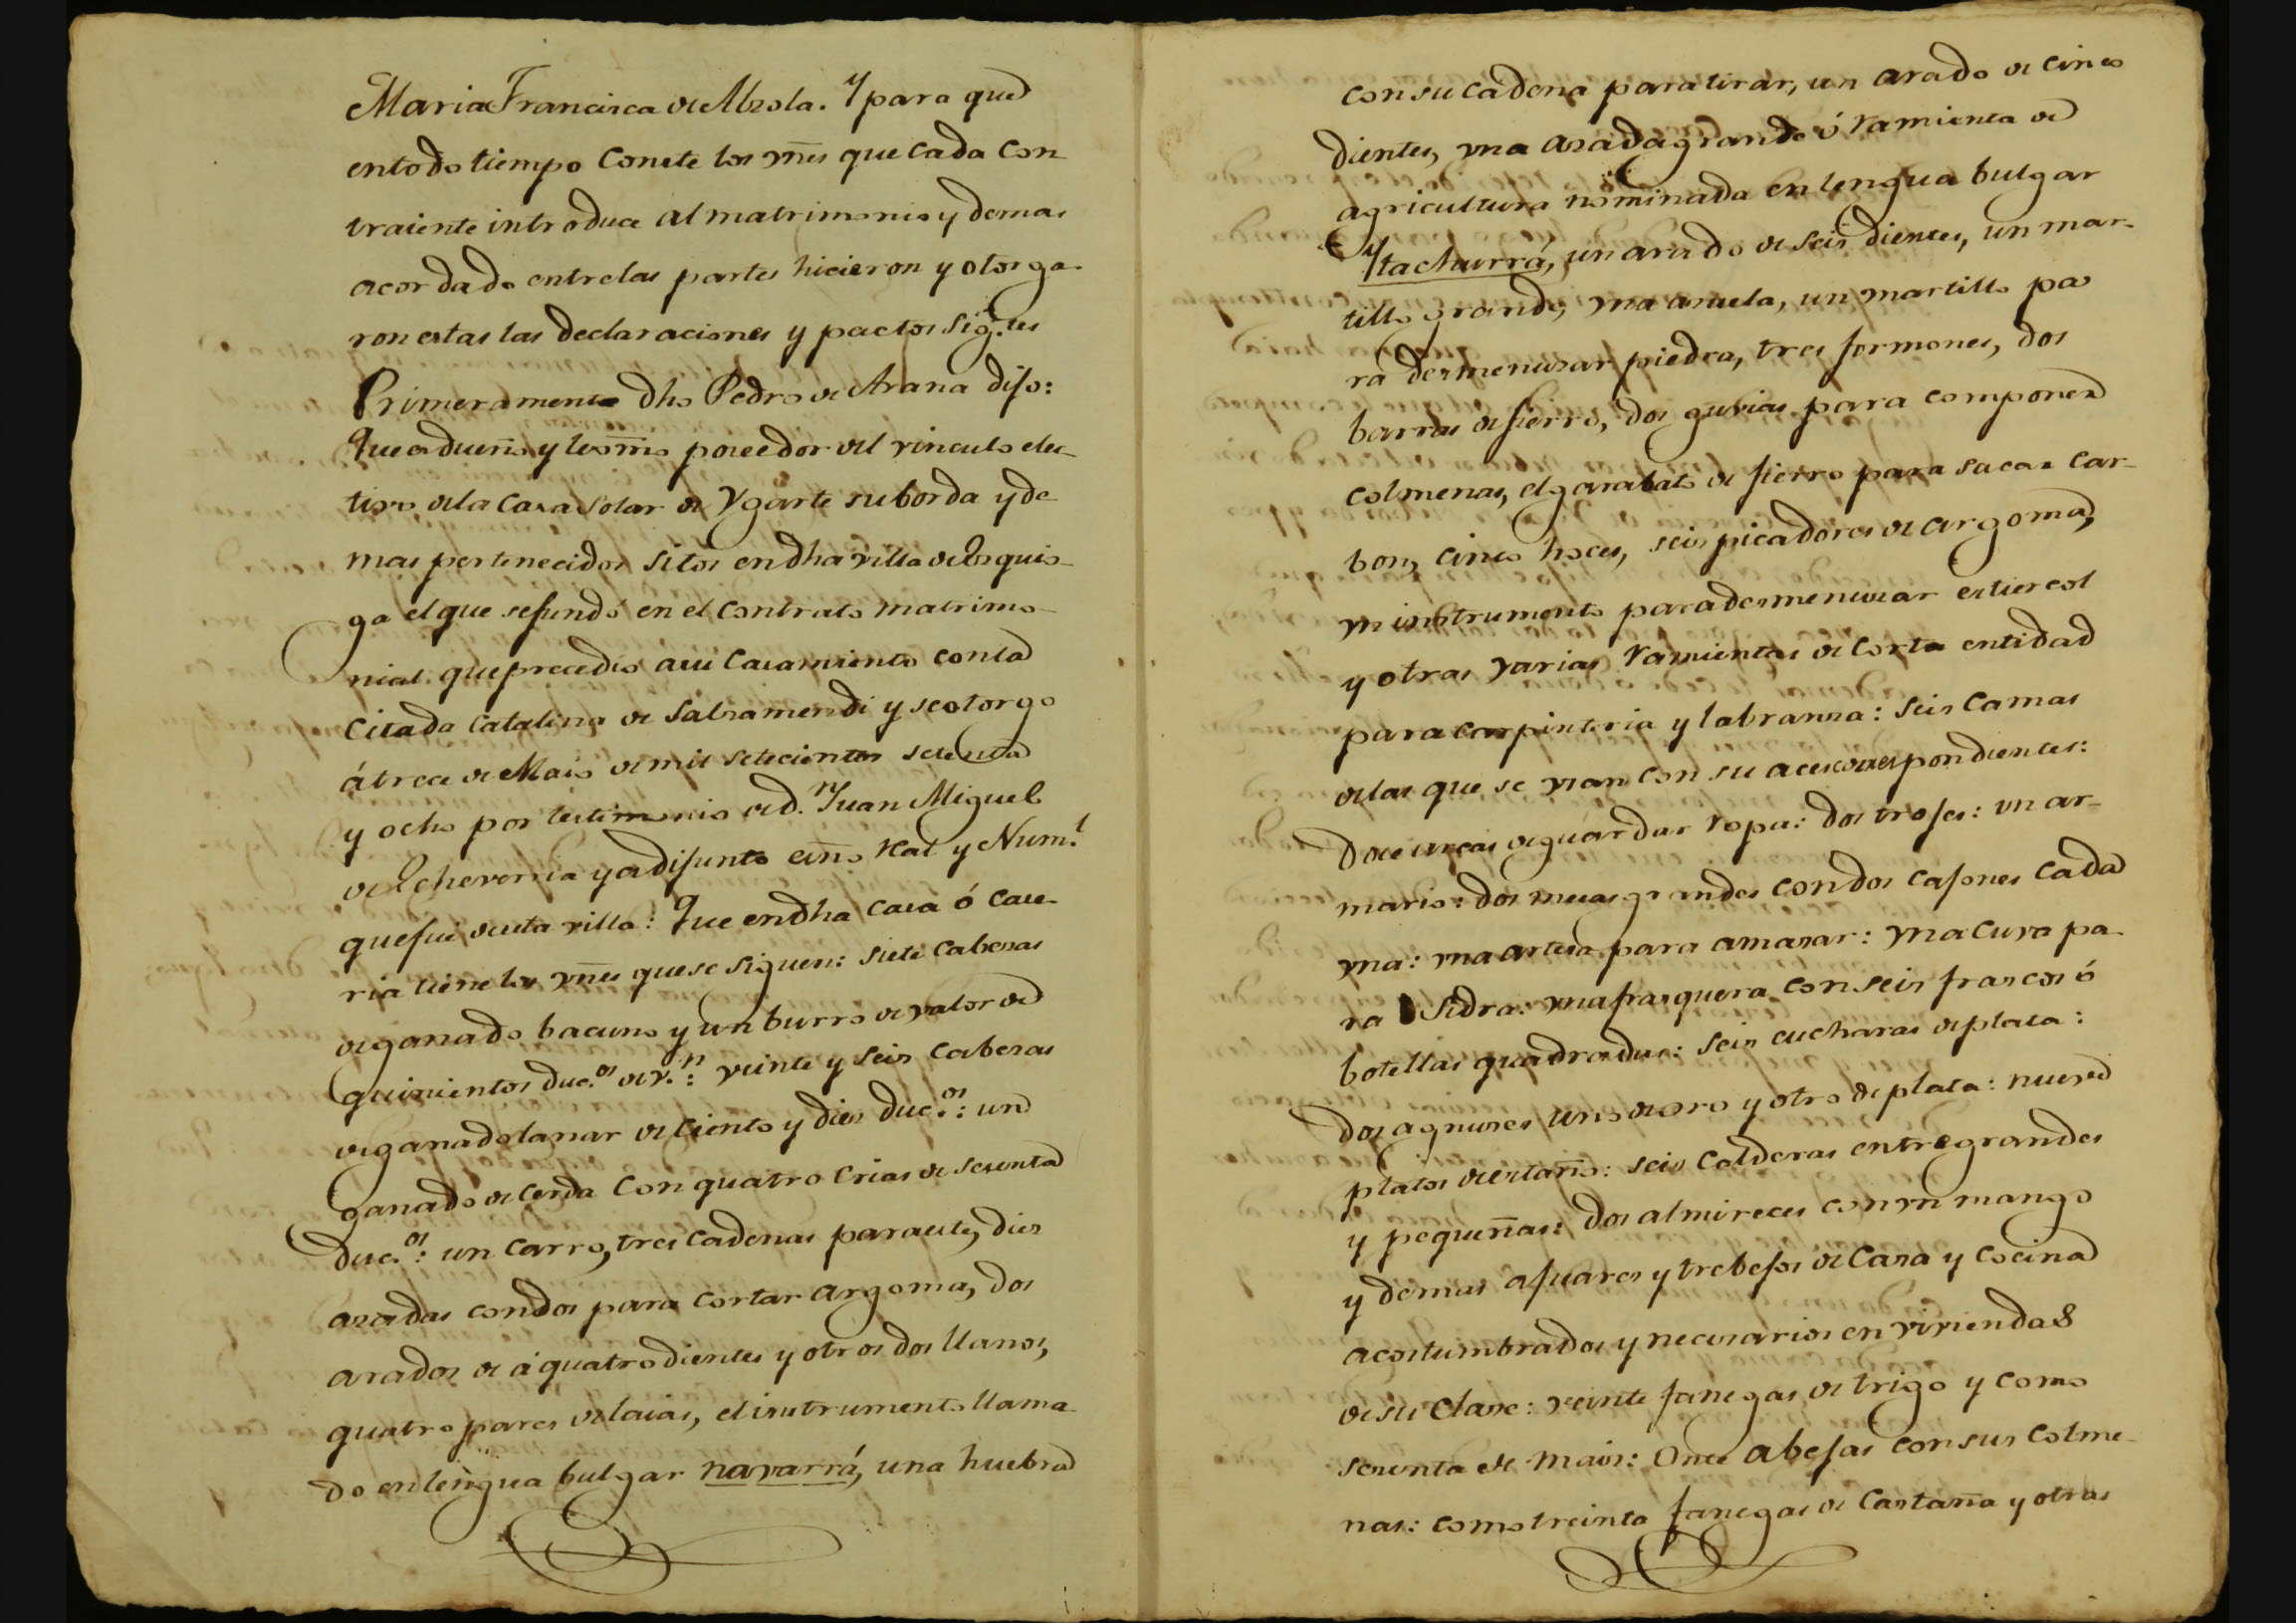 Maria Francisca de Alzola. Y para que
en todo tiempo Conste los vnes que Cada Con
traiente introduce al matrimonio y demas
acordado entre las partes hicieron y otorga
ron estas las declaraciones y pactos Sig.tes
Primeramente dho Pedro de Arana dijo:
Que es dueño y lexmo poseedor del vinculo elec-
tivo de la Casa Solar de Ygarte su borda y de
mas pertenecidos sitos en dha villa de Ezquio-
ga el que se fundó en el Contrato matrimo-
nial que precedio a su Casamiento con la
Citada Catalina de Salsamendi y se otorgo
á trece de Maio de mil setecientos setenta
y ocho por testimonio de D.n Juan Miguel
de Echeverria ya difunto esno Real y Num.l
que fue de esta villa: Que en dha Casa ó Case-
ria tiene los vnes que se siguen: siete Cabezas
de ganado bacuno y un burro de valor de
quinientos duc.os de v.n: veinte y seis Cabezas
de ganado lanar de Ciento y diez duc.os: un
ganado de Cerda Con quatro Crias de sesenta
duc.os: un Carro, tres Cadenas para este, diez
azadas con dos para cortar argoma, dos
arados de á quatro dientes y otros dos llanos,
quatro pares de laias, el instrumento llama
do en lengua bulgar navarrá, una huebra
con su Cadena para tirar, un arado de Cinco
dientes, vna azada grande ó Ramienta de
agricultura nominada en lengua bulgar
Ytachurrá, un arado de Seis dientes, un mar-
tillo grande, vna azuela, un martillo pa
ra desmenuzar piedra, tres formones, dos
barras de fierro, dos guvias para componer
Colmenas, el garabato de fierro para sacar Car-
bon, Cinco hoces, seis picadores de argoma,
vn instrumento para desmenuzar estiercol
y otras varias Ramientas de Corta entidad
para carpinteria y labranza: Seis Camas
de las que se vsan Con su correspondientes:
Doce arcas de guardar Ropa: dos trojes: vn ar-
mario: dos mesas grandes con dos cajones Cada
vna: vna artesa para amasar: vna Cuva pa
ra Sidra: vna frasquera con seis frascos ó
botellas quadradas: Seis cucharas de plata:
dos agnuses uno de oro y otro de plata: nueve
platos de estaño: Seis Calderas entre grandes
y pequeñas: dos almireces con vn mango
y demas ajuares y trebejos de Casa y Cocina
acostumbrados y necesarios en viviendas
de su Clase: veinte fanegas de trigo y como
sesenta de Maiz: Once abejas con sus Colme-
nas: como treinta fanegas de Castaña y otras